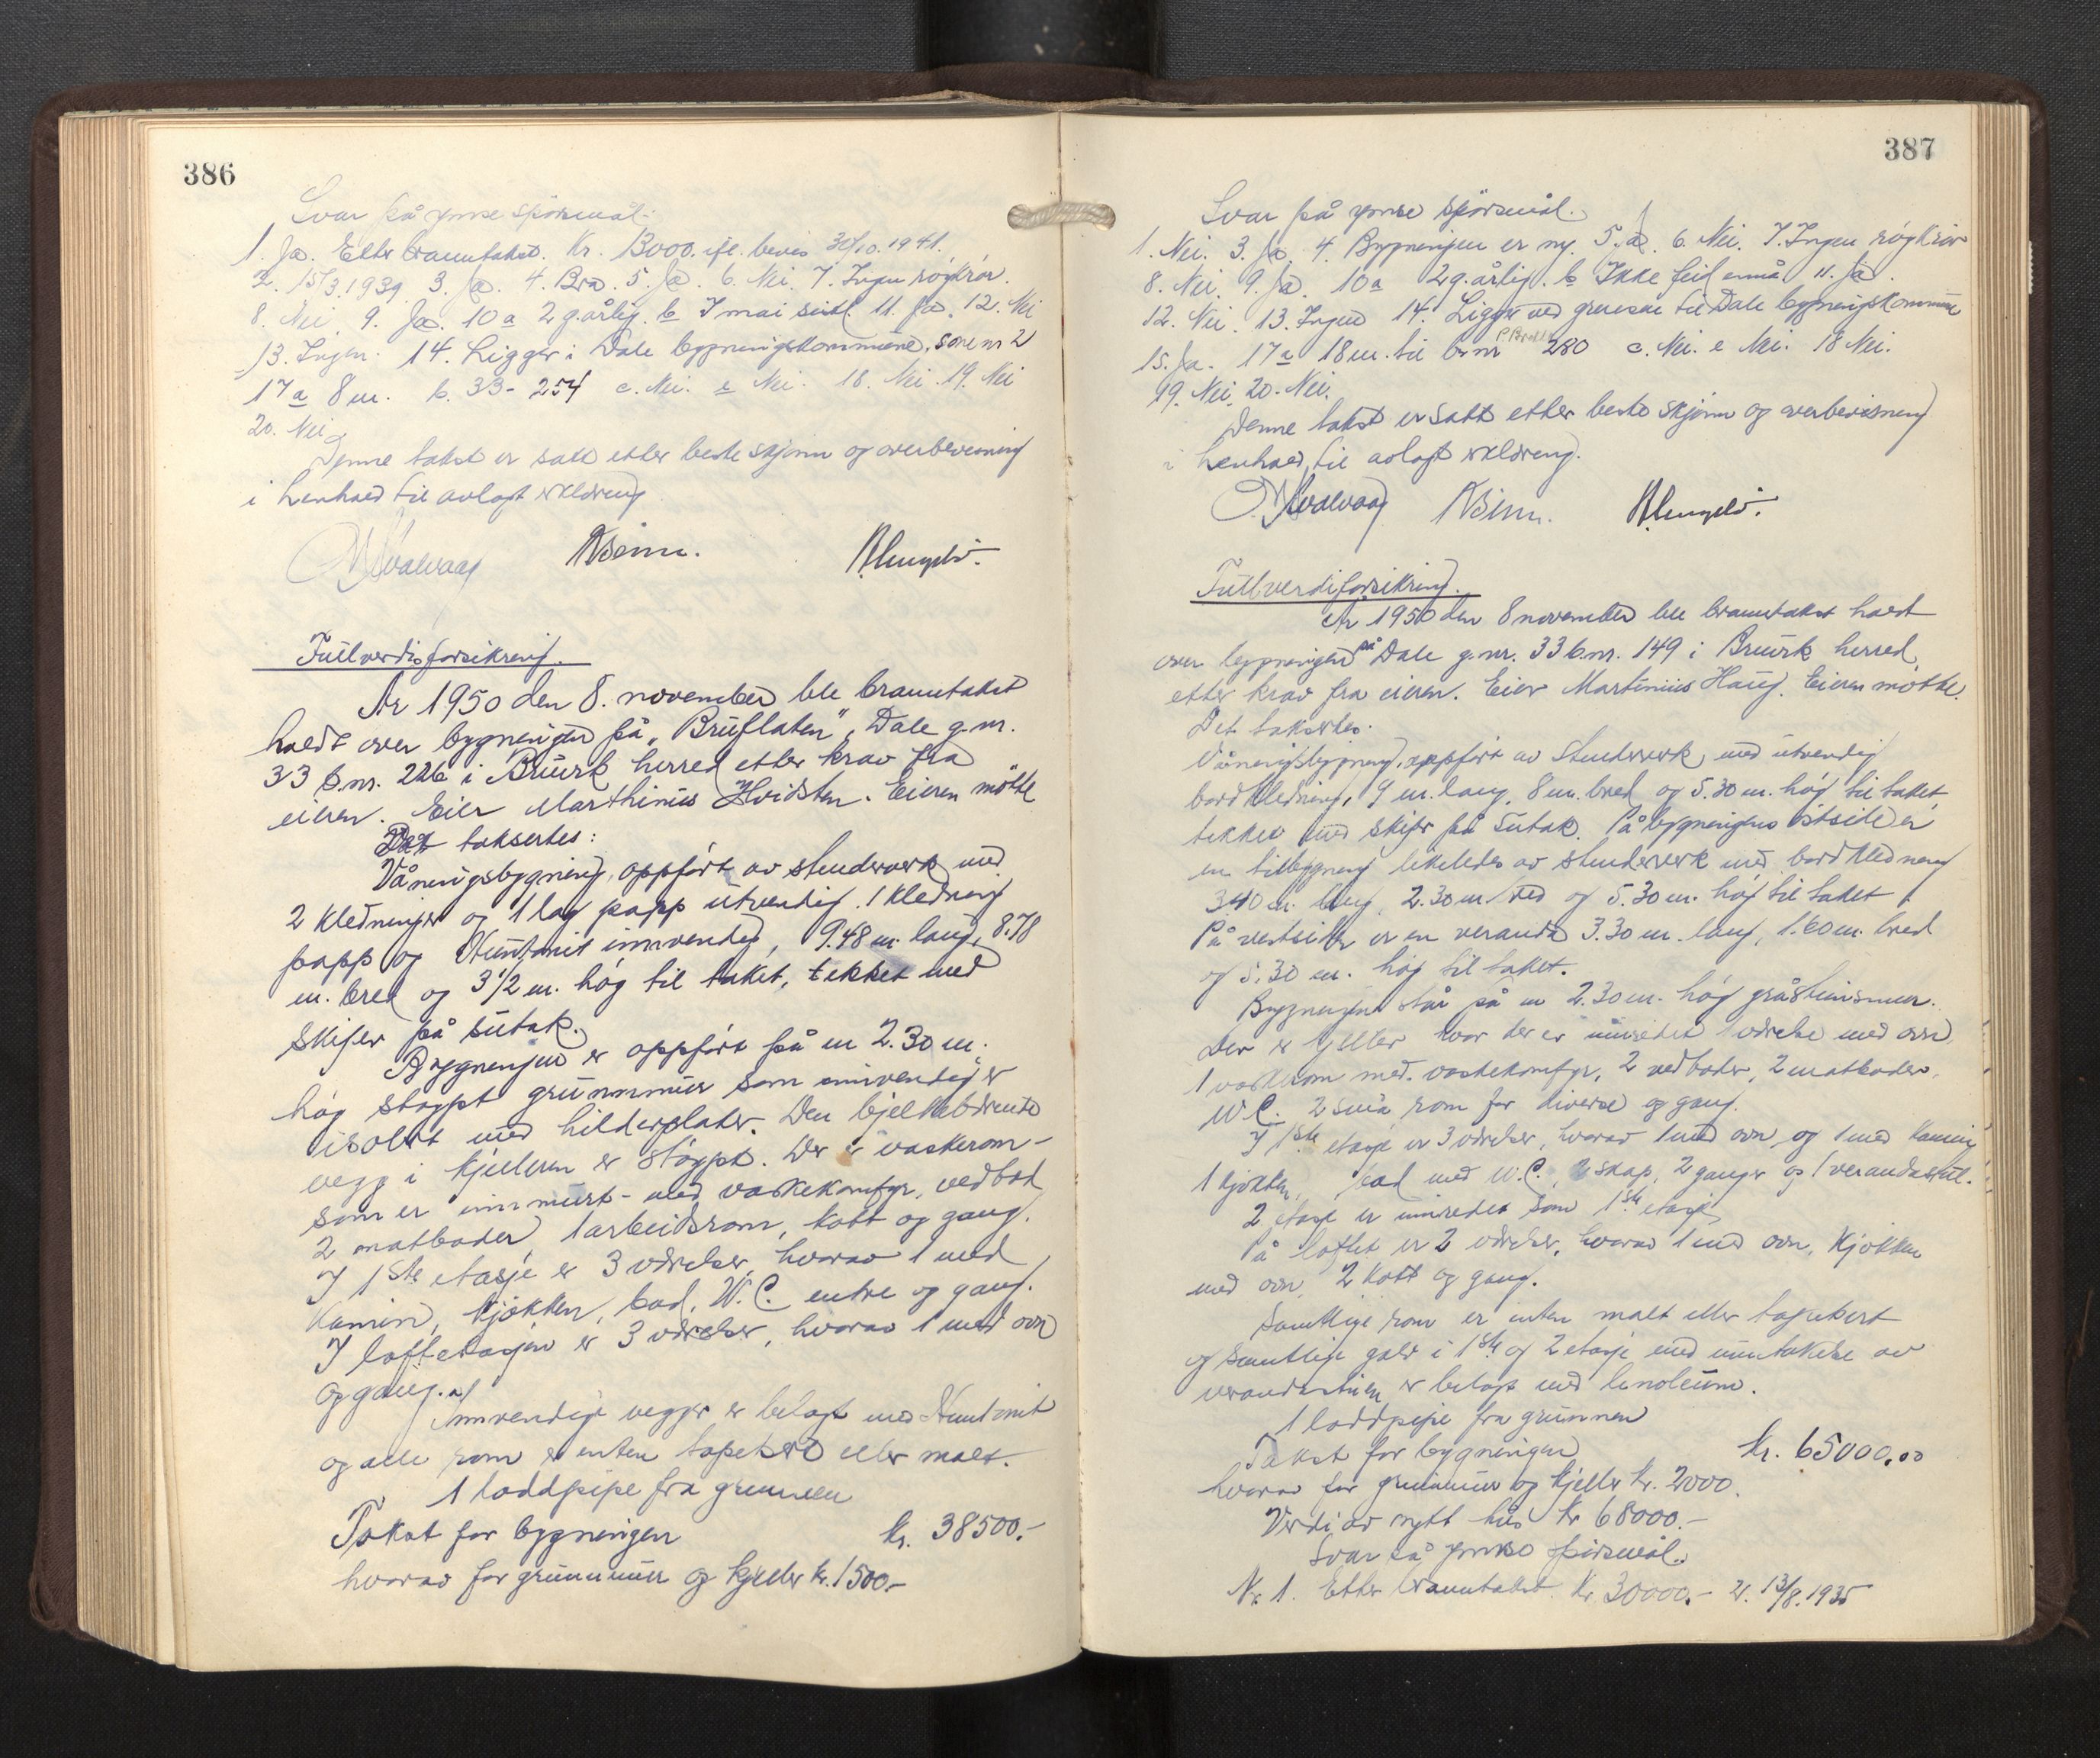 386
Svar på ymse spörsmål.
1. Ja. Etter branntakst. Kr. 13000. ifl. bevis 30/10.1941.
2. 15/3.1939. 3. Ja. 4. Bra. 5. Ja. 6. Nei. 7. Ingen rögkrör.
8. Nei. 9. Ja. 10 a 2 g. årlig. b I mai sist. 11. Ja. 12. Nei
13. Ingen. 14. Ligger i Dale bygningskommune, sone nr 2
17 a 8 m. b. 33-254 c. Nei. e Nei. 18. Nei. 19. Nei
20. Nei.
Denne takst er satt etter beste skjönn og overbevisning
i henhold til avlagt erklæring
Fullverdiforsikring.
År 1950 den 8. november ble branntakst
holdt over bygningen på „Bruflaten", Dale g.nr.
33 b.nr. 226 i Bruvik herred etter krav fra
eieren. Eier Marthinus Hvidsten. Eieren mötte
Det taksertes:
Våningsbygning, oppfört av stenderverk med
2 kledninger og 1 lag papp utvendig. 1 kledning
papp og Huntonit innvendig, 9.48 m. lang, 8.78
m. bred og 3 1/2 m. hög til taket, tekket med
skifer på sutak.
Bygningen er oppfört på en 2.30 m.
hög stöypt grunnmur som innvendig er
isolert med hilderplater. Den bjelkebærende
vegg i kjelleren er stöypt. Der er vaskerom -
som er innmurt - med vaskekomfyr, vedbod
2 matboder 1 arbeidsrom, kott og gang.
I 1ste etasje er 3 værelser, hvorav 1 med
kamin, kjökken, bad, W.C. entre og gang.
I loftetasjen er 3 værelser, hvorav 1 med ovn
og gang.
Innvendige vegger er belagt med Huntonit
og alle rom er enten tapetsert eller malt.
1 loddpipe fra grunnen
Takst for bygningen kr. 38500.-
hvorav for grunnmur og kjeller kr. 1500.-
387
Svar på ymse spörsmål.
1. Nei. 3. Ja. 4. Bygningen er ny. 5. Ja. 6. Nei. 7. Ingen rögkrör
8. Nei. 9. Ja. 10 a 2 g. årlig. b Ikke feid ennå 11. Ja.
12. Nei. 13. Ingen 14. Ligger ved grensen til Dale bygningskommune
15. Ja. 17 a 18 m. til b.nr 280 c. Nei. e Nei. 18 Nei.
19. Nei. 20. Nei.
Denne takst er satt etter beste skjönn og overbevisning
i henhold til avlagt erklæring.
Fullverdiforsikring.
År 1950 den 8 november ble branntakst holdt
over bygningen på Dale g.nr. 33 b.nr. 149 i Bruvik herred
etter krav fra eieren. Eier Martinius Haug. Eieren mötte.
Det taksertes.
Våningsbygning, oppfört av stenderverk, med utvendig
bordkledning, 9 m. lang, 8 m. bred og 5.30 m. hög til taket
tekket med skifer på sutak. På bygningens östside er
en tilbygning likeledes av stenderverk med bordkledning
3.40 m. lang, 2.30 m. bred og 5.30 m. hög til taket
På vestsiden er en veranda 3.30 m. lang, 1.60 m. bred
og 5.30 m. hög til taket.
Bygningen står på en 2.30 m. hög gråsteinsmur.
Der er kjeller hvor der er innredet 1 værelse med ovn
1 vaskerom med vaskekomfyr, 2 vedboder, 2 matboder,
W.C. 2 små rom for diverse og gang.
I 1ste etasje er 3 værelser, hvorav 1 med ovn og 1 med kamin
1 kjökken, bad med W.C., 2 skap, 2 ganger og 1 verandastue.
2 etasje er innredet som 1ste etasje
På loftet er 2 værelser, hvorav 1 med ovn, kjökken
med ovn, 2 kott og gang.
Samtlige rom er enten malt eller tapetsert
og samtlige golv i 1ste og 2 etasje med unntakelse av
verandastuen er belagt med linoleum.
1 loddpipe fra grunnen
Takst for bygningen kr. 65000.00
hvorav for grunnmur og kjeller kr. 2000.
Verdi av nytt hus kr 68000.-
Svar på ymse spörsmål.
Nr. 1. Etter branntakst. Kr. 30000.- 2. 13/8.1935